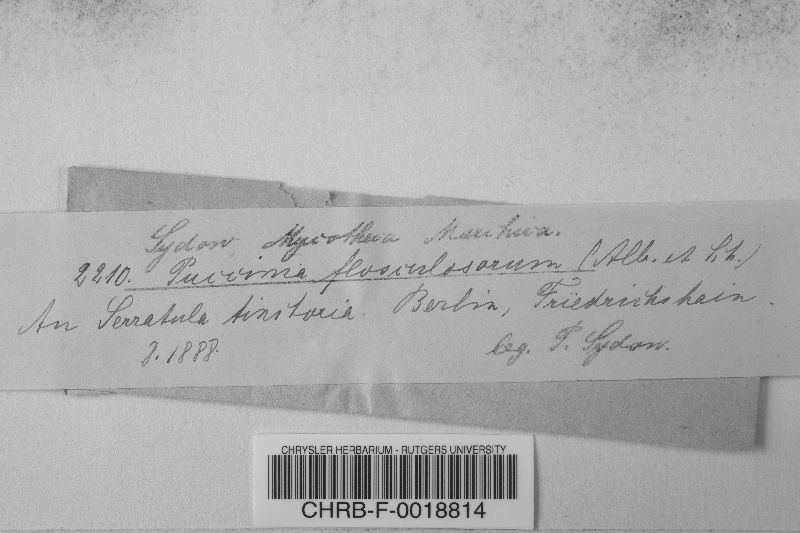 Sydow, Mycotheca Marchica.
2210. Puccinia flosculosorum (Alb. et Sch.)
An Serratula tinctoria. Berlin, Friedrichshain.
8. 1888. leg. P. Sydow.
CHRYSLER HERBARIUM - RUTGERS UNIVERSITY
CHRB-F-0018814